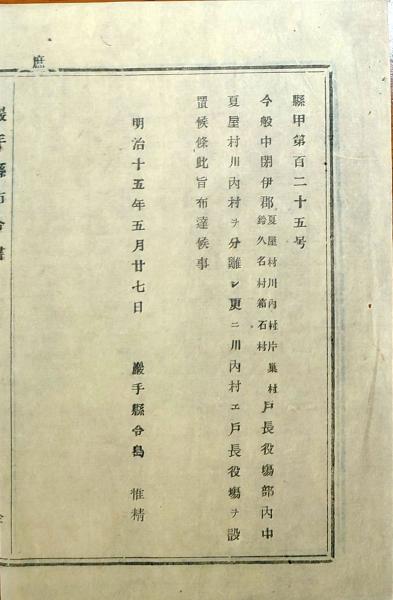 庶
縣甲第百二十五号
今般中閉伊郡夏屋村川内村片巣村鈴久名村箱石村戸長役塲部内中
夏屋村川内村ヲ分離シ更ニ川内村エ戸長役塲ヲ設
置候條此旨布達候事
明治十五年五月廿七日 巖手縣令島 惟精
巖手縣布令書